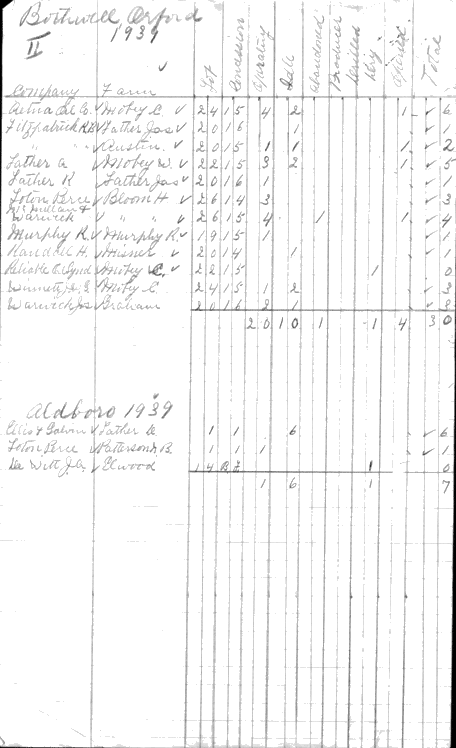 Bothwell, Orford
II 1939
Company Farm Lot Concession Operating Idle Abandoned Produced Drilled Dry Total
Aetna Oil Co. Mobey C. 24 15 4 2 1 6
Fitzpatrick Father Jas 20 16 1 1
" " Austin 20 15 1 1 1 2
Father A Mobey W. 22 15 3 2 1 5
Father K Father Jas 20 16 1 1
Loton Perce Bloom H 26 14 3 3
McMillan &
Warwick " " 26 15 4 1 1 4
Murphy R. Murphy R. 19 15 1 1
Randall H. Misner 20 14 1 1
Reliable Synd Mobey C. 22 15 1 0
Mobey C. 24 15 1 2 3
Warwick Jas Graham 20 16 2 1 3
20 10 1 1 4 30
Aldboro 1939
Ellis & Galvin Father 1 1 6 6
Loton Perce Patterson B. 1 1 1 1
De Witt J.A. Elwood 14 BF 1 0
1 6 1 7